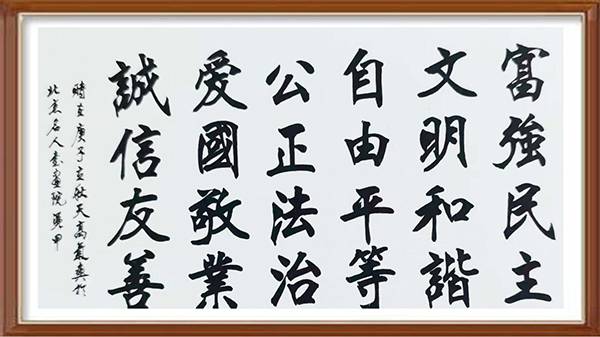 富強民主
文明和諧
自由平等
公正法治
愛國敬業
誠信友善
時在庚子立秋天高氣爽於
北京名人書畫院